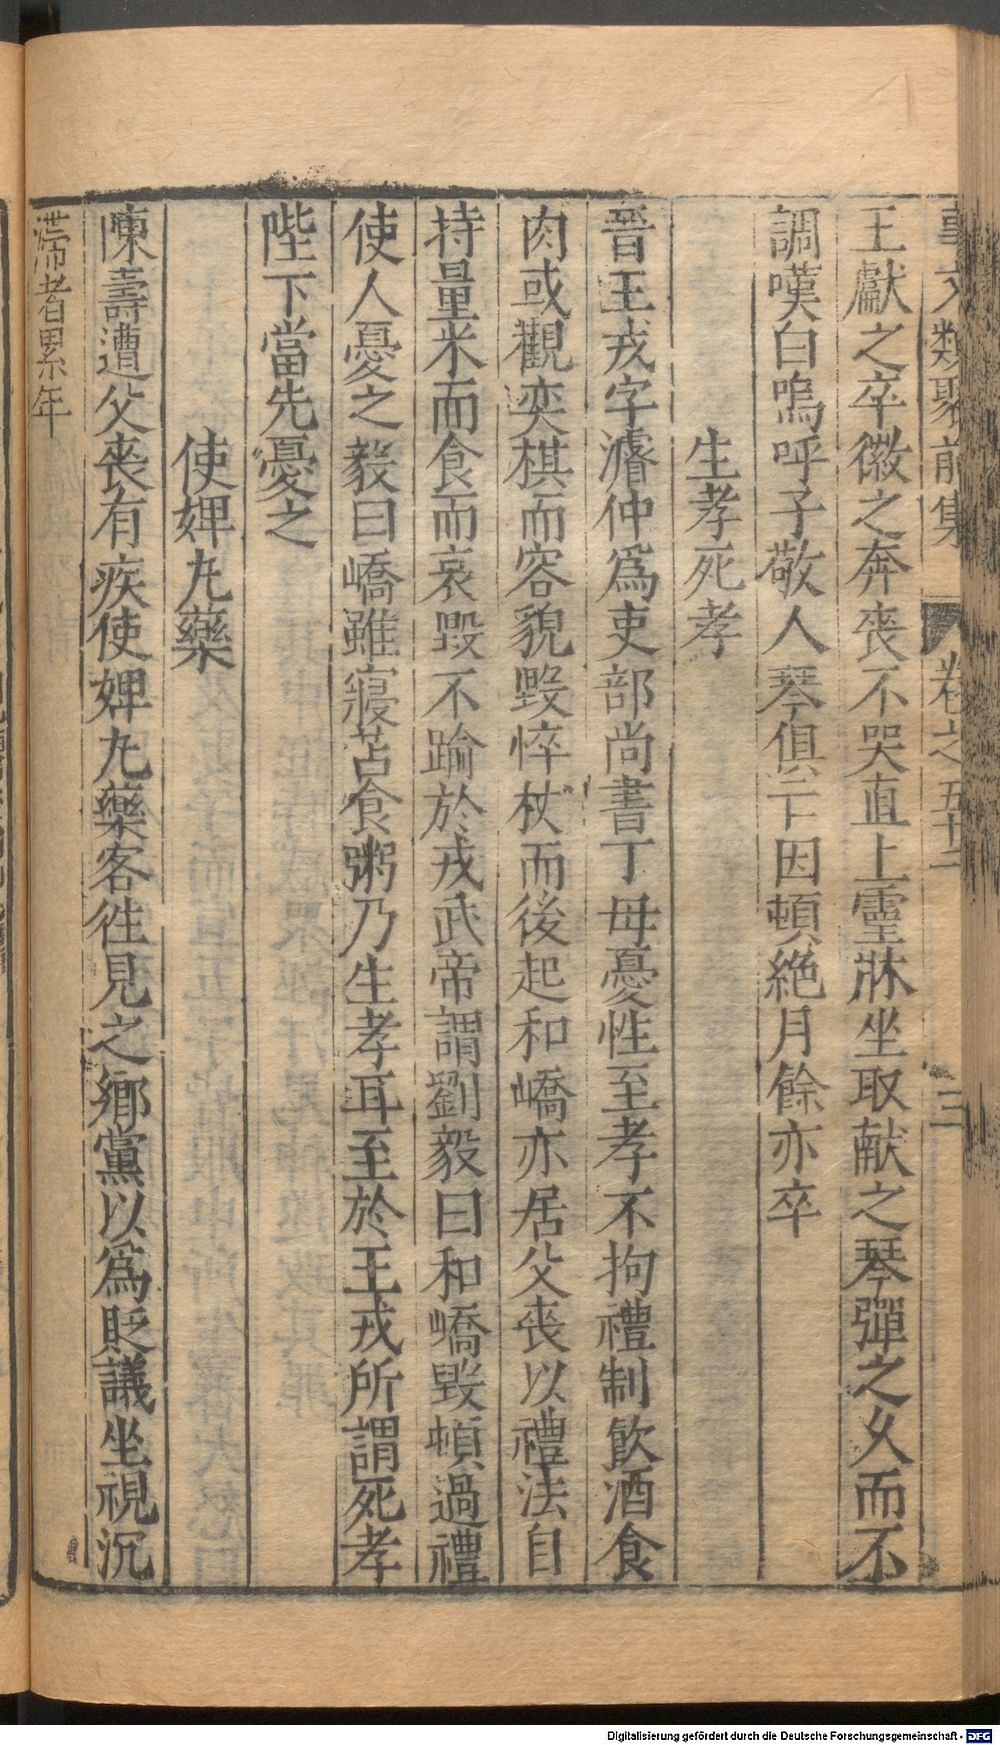 事文類聚前集 卷之五十二 三
王獻之卒徽之奔喪不哭直上靈牀坐取献之琴彈之乆而不
調嘆曰嗚呼子敬人琴俱亡因頓絶月餘亦卒
生孝死孝
晉王戎字濬仲爲吏部尚書丁母憂性至孝不拘禮制飲酒食
肉或觀奕棋而容貌毀悴杖而後起和嶠亦居父喪以禮法自
持量米而食而哀毀不踰於戎武帝謂劉毅曰和嶠毀頓過禮
使人憂之毅曰嶠雖寢苫食粥乃生孝耳至於王戎所謂死孝
陛下當先憂之
使婢丸藥
陳壽遭父喪有疾使婢丸藥客徃見之鄉黨以爲貶議坐視沉
滯者累年
Digitalisierung gefördert durch die Deutsche Forschungsgemeinschaft - DFG